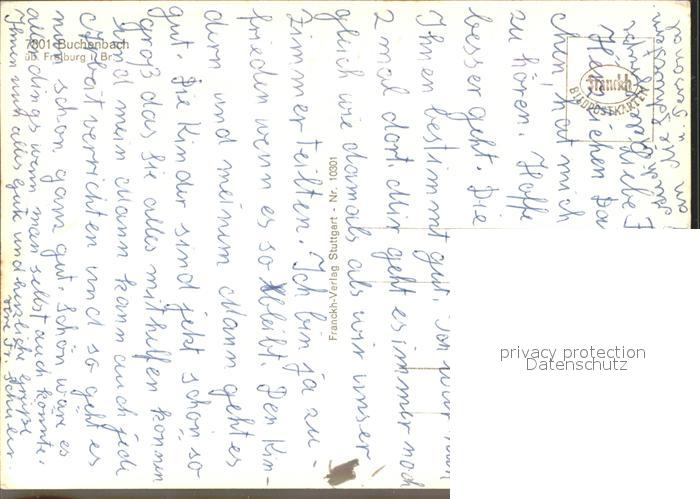 7801 Buchenbach
üb. Freiburg i. Br.
Franckh
BILDPOSTKARTEN
Franckh-Verlag Stuttgart - Nr. 10301
privacy protection
Datenschutz
liebe F
Herzlichen Da
chen hat mich
zu hören. Hoffe
besser geht. Die
Ihnen bestimmt gut. Ich war
2 mal dort. Mir geht es immer noch
gleich wie damals als wir unser
Zimmer teilten. Ich bin ja zu-
frieden wenn es so bleibt. Den Kin-
dern und meinem Mann geht es
gut. Die Kinder sind jetzt schon so
groß das sie alles mithelfen können
und mein Mann kann auch jede
Arbeit verrichten und so geht es
mir schon ganz gut. Schön wäre es
allerdings wenn man selbst auch könnte.
Ihnen nun alles gute und herzliche Grüße
Ihre Fr. Schuler